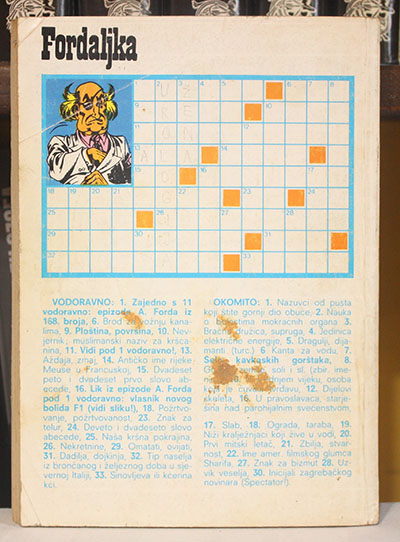 Fordaljka
VODORAVNO: 1. Zajedno s 11
vodoravno: epizoda A. Forda iz
168. broja, 6. Brod za vožnju kana-
lima, 9. Ploština, površina, 10. Nev-
jernik; muslimanski naziv za kršća-
nina, 11. Vidi pod 1 vodoravno!, 13.
Aždaja, zmaj, 14. Antičko ime rijeke
Meuse u Francuskoj, 15. Dvadeset
peto i dvadeset prvo slovo ab-
ecede, 16. Lik iz epizode A. Forda
pod 1 vodoravno: vlasnik novog
bolida F1 (vidi sliku!), 18. Požrtvo-
vanje, požrtvovanost, 23. Znak za
telur, 24. Deveto i dvadeseto slovo
abecede, 25. Naša kršna pokrajina,
26. Nekretnine, 29. Omatati, ovijati,
31. Dadilja, dojkinja, 32. Tip naselja
iz brončanog i željeznog doba u sje-
vernoj Italiji, 33. Sinovljeva ili kćerina
kći.
OKOMITO: 1. Nazuvci od pusta
koji štite gornji dio obuće, 2. Nauka
o bolestima mokraćnih organa 3.
Bračna družica, supruga, 4. Jedinica
električne energije, 5. Dragulji, dija-
manti (turc.) 6 Kanta za vodu, 7.
Selo kavkaskih gorštaka, 8.
i sl. (zbir. ime-
vijeku osoba
12. Dijelovi
skaleta, 16. U pravoslavaca, starje-
šina nad parohijalnim svećenstvom,
17. Slab, 18. Ograda, taraba, 19.
Niži kralježnjaci koji žive u vodi, 20.
Prvi mitski letač, 21. Zbilja, stvar-
nost, 22. Ime amer. filmskog glumca
Sharifa, 27. Znak za bizmut 28. Uz-
vik veselja, 30. Inicijali zagrebačkog
novinara (Spectator!).